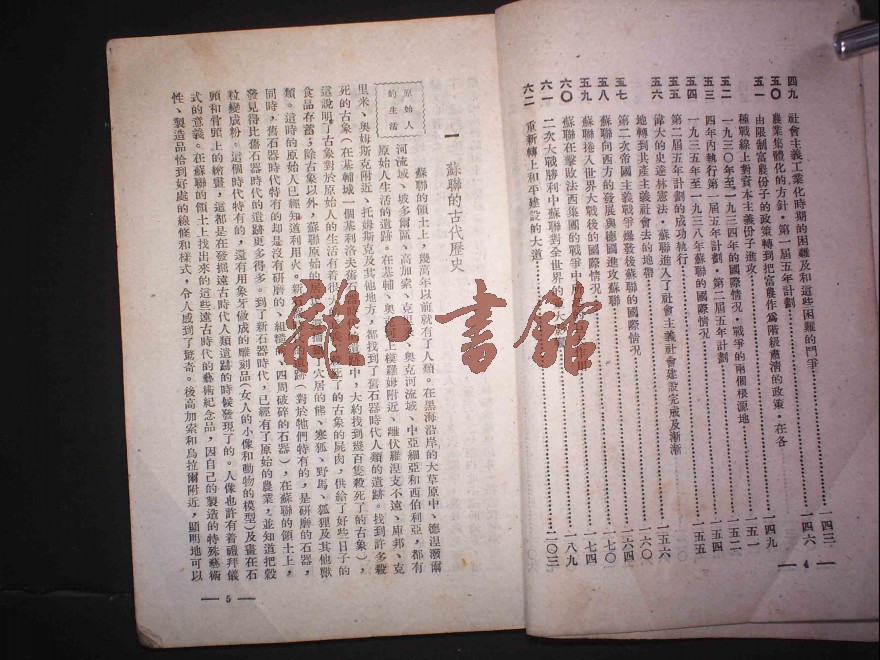 四九　社會主義工業化時期的困難及和這些困難的鬥爭……一四三
五〇　農業集體化的方針・第一屆五年計劃……一四六
五一　由限制富農份子的政策轉到把富農作為階級肅清的政策・在各
種戰線上對資本主義份子進攻……一四九
五二　一九三〇年至一九三四年的國際情況・戰爭的兩個根源地……一五一
五三　四年內執行第一屆五年計劃・第二屆五年計劃……一五二
五四　一九三五年至一九三八年蘇聯的國際情況……一五五
五五　第二屆五年計劃的成功執行
五六　偉大的史達林憲法・蘇聯進入了社會主義社會建設完成及漸漸
地轉到共產主義社會去的地帶……一五六
五七　第二次帝國主義戰爭爆發後蘇聯的國際情況……一六〇
五八　蘇聯向西方的發展與德國進攻蘇聯……一六四
五九　蘇聯捲入世界大戰後的國際情況……一七〇
六〇　蘇聯在擊敗法西集團的戰爭中……作用……一七四
六一　二次大戰勝利中蘇聯對全世界的……大……一八九
六二　重新轉上和平建設的大道……二〇三
— 4 —
一　蘇聯的古代歷史
原始人
的生活
蘇聯的領土上，幾萬年以前就有了人類。在黑海沿岸的大草原中、德涅潑爾
河流域、坡多爾區、高加索、克里米、奧克河流域、中亞細亞和西伯利亞，都有
原始人生活的遺跡。在基輔、奧克河上模羅姆附近、離伏羅涅支不遠、庫邦、克
里米、奧姆斯克附近、托姆斯克及其他地方，都找到了舊石器時代人類的遺跡。找到許多殺
死的古象（在基輔城一個基利洛夫舊石器時代遺跡中，大約找到幾百隻殺死了的古象），
這說明了古象對於原始人的生活有着很大殺死了的古象的屍肉，供給了好些日子的
食品存蓄；除古象以外，蘇聯原始的居穴居的熊、寒狐、野馬、狐狸及其他獸
類。這時的原始人已經知道利用火。新石器遺跡（對於牠們特有的，是研磨的石器，
同時，舊石器時代特有的却是沒有研磨的、粗糙的、四周破碎的石器），在蘇聯的領土上，
發見得比舊石器時代的遺跡更多得多。到了新石器時代，已經有了原始的農業，並知道把穀
粒變成粉。這個時代特有的，還有用象牙做成的雕刻品（女人的小像和動物的模型）及畫在石
頭和骨頭上的繪畫，這都是在發掘遠古時代人類遺跡的時候發現了的。人像也許有着禮拜儀
式的意義。在蘇聯的領土上找出來的這些遠古時代的藝術紀念品，因自己的製造的特殊藝術
性、製造品恰到好處的線條和樣式，令人感到了驚奇。後高加索和烏拉爾附近，顯明地可以
— 5 —
雜・書館